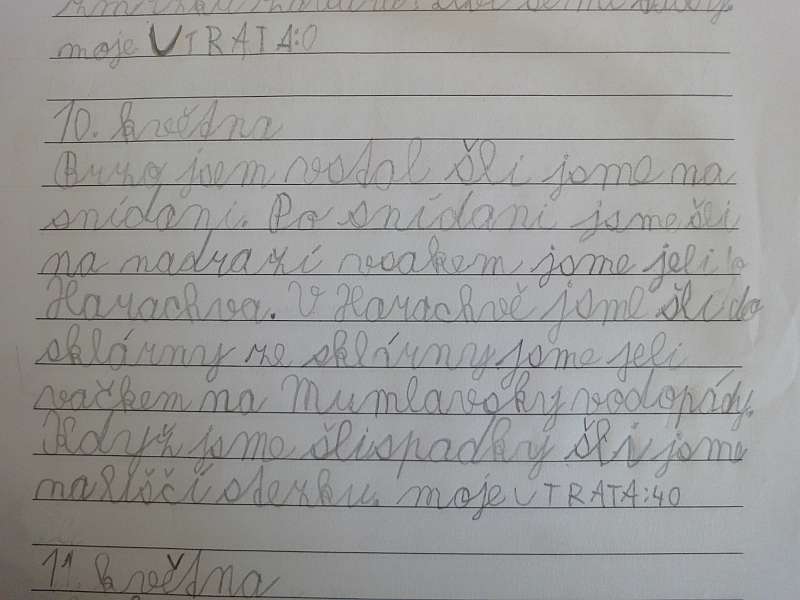 moje UTRATA:0
10. května
Brzo jsem vstal šli jsme na
snídani. Po snídani jsme šli
na nadrazí vvakem jsme jeli do
Harachva. V Harachvě jsme šli do
sklárny ze sklárny jsme jeli
vačkem na Mumlavsky vodopády.
Když jsme šlispadky šli jsme
na líščí stezku. moje UTRATA:40
11. května